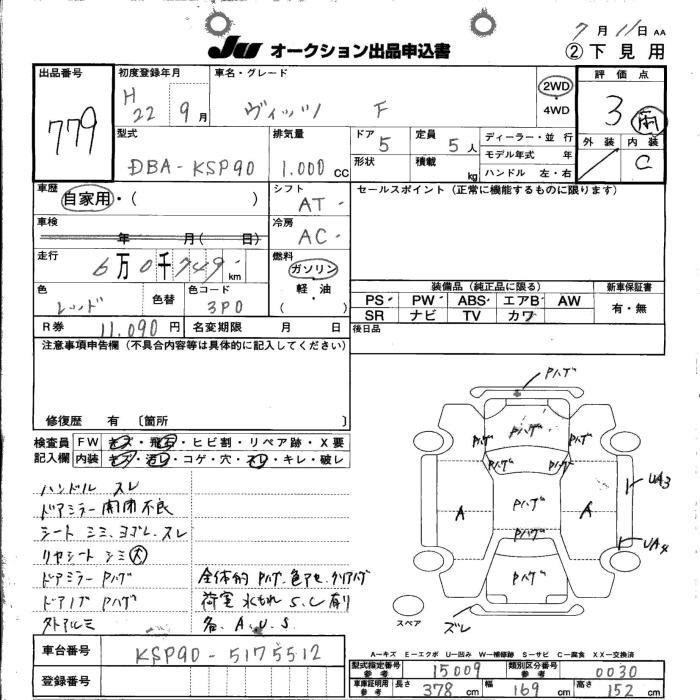 7月11日 AA
JU オークション出品申込書
② 下見用
出品番号
779
初度登録年月
H 22 9月
車名・グレード
ヴィッツ F
2WD
・
4WD
評価点
3 雨
外装 内装
C
型式
DBA-KSP90
排気量
1.000 CC
ドア 5
定員 5人
形状
積載 kg
ディーラー・並行
モデル年式 年
ハンドル 左・右
車歴
自家用・( )
シフト
AT
セールスポイント(正常に機能するものに限ります)
車検
年 月( 日)
冷房
AC
走行
6万0千749 km
燃料
ガソリン
軽・油
( )
色
レッド
色替
色コード
3P0
装備品(純正品に限る)
新車保証書
PS PW ABS エアB AW
SR ナビ TV カワ
有・無
R券 11.090円
名変期限 月 日
後日品
注意事項申告欄(不具合内容等は具体的に記入してください)
修復歴 有 〔箇所 〕
検査員記入欄
FW キズ・飛石・ヒビ割・リペア跡・X要
内装 キズ・汚レ・コゲ・穴・スレ・キレ・破レ
ハンドル スレ
ドアミラー 開閉不良
シート シミ、ヨゴレ、スレ
リヤシート シミ大
ドアミラー Pハゲ
ドアノブ Pハゲ
外アルミ
全体的 Pハゲ、色アセ、クリアハゲ
荷室 水もれ S、C 有り
各、A、U、S
Pハゲ
Pハゲ
Pハゲ Pハゲ
Pハゲ Pハゲ
Pハゲ
A A
Pハゲ
Pハゲ
UA3
UA4
スペア
ズレ
車台番号
KSP90-5175512
登録番号
A-キズ E-エクボ U-凹み W-補修跡 S-サビ C-腐食 XX-交換済
型式指定番号 参考 15009
類別区分番号 参考 0030
車庫証明用 参考
長さ 378 cm
幅 169 cm
高さ 152 cm